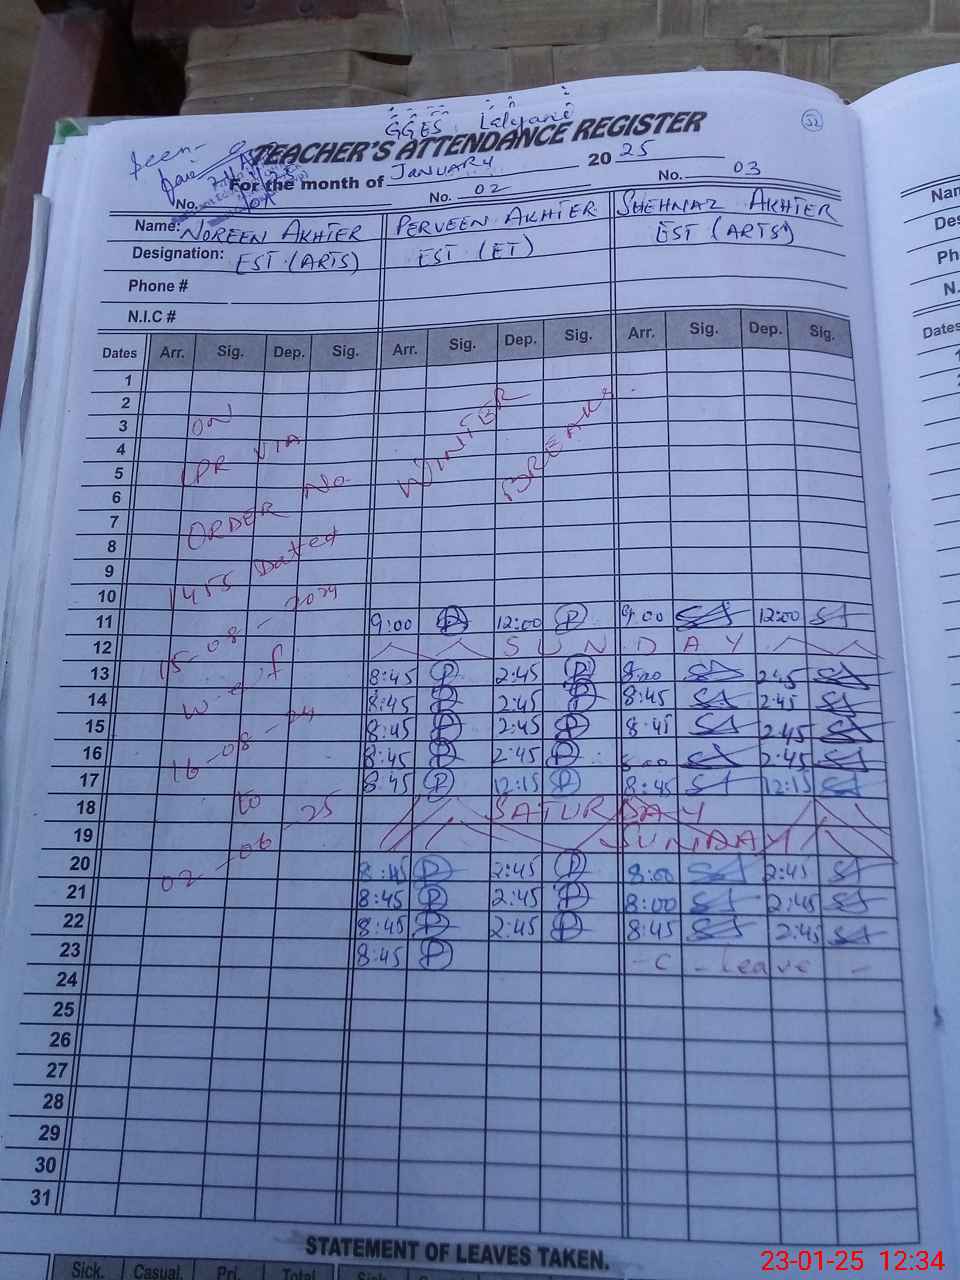 GGES Lalyani
52
TEACHER'S ATTENDANCE REGISTER
Seen
For the month of January 2025
No. No. 02 No. 03
Name: NOREEN AKHTER PERVEEN AKHTER SHEHNAZ AKHTER
Designation: EST (ARTS) EST (ET) EST (ARTS)
Phone #
N.I.C #
Dates Arr. Sig. Dep. Sig. Arr. Sig. Dep. Sig. Arr. Sig. Dep. Sig.
1
2
3
4
5
6
7
8
9
10
ON
LPR VIA
ORDER No.
1455 Dated
15-08-2024
w.e.f
16-08-24
to
02-06-25
WINTER
BREAK
11 9:00 P 12:00 P 9:00 12:00
12 SUNDAY
13 8:45 P 2:45 P 8:00 2:45
14 8:45 P 2:45 P 8:45 2:45
15 8:45 P 2:45 P 8:45 2:45
16 8:45 P 2:45 P 2:45
17 8:45 P 12:15 P 8:45 12:15
18 SATURDAY
19 SUNDAY
20 8:45 P 2:45 P 8:00 2:45
21 8:45 P 2:45 P 8:00 2:45
22 8:45 P 2:45 P 8:45 2:45
23 8:45 P - C - Leave -
24
25
26
27
28
29
30
31
STATEMENT OF LEAVES TAKEN.
Sick. Casual. Pri. Total Sick.
Nam
Des
Ph
N.
Dates
23-01-25 12:34